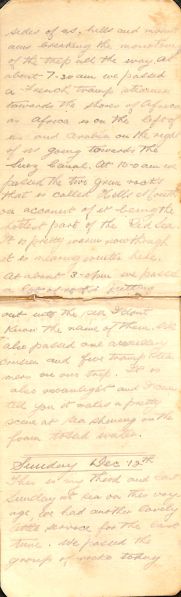 sides of us, hills and mount
ains breaking the monotony
of the trip all the way. At
about 7-30 am we passed
a French tramp steamer
towards the shores of Africa
as Africa is on the left of
us and Arabia on the right
of us going towards the
Suez Canal. At 10-0 am we
passed the two grim rocks
that is called Hell's Mouth
on account of it being the
hottest part of the Red Sea.
It is pretty warm now though
it is
At about 3-0 pm we passed
a lot of rocks jutting
out into the sea I dont
know the name of them. We
also passed one auxiliary
cruiser and five tramp stea
mers on our trip. It is
also moonlight and I can
tell you it makes a pretty
scene at sea shining on the
foam tossed water.
Sunday Dec 12th
This is my third and last
Sunday at sea on this voy
age we had another lovely
little service for the last
time. We passed the
group of rocks today